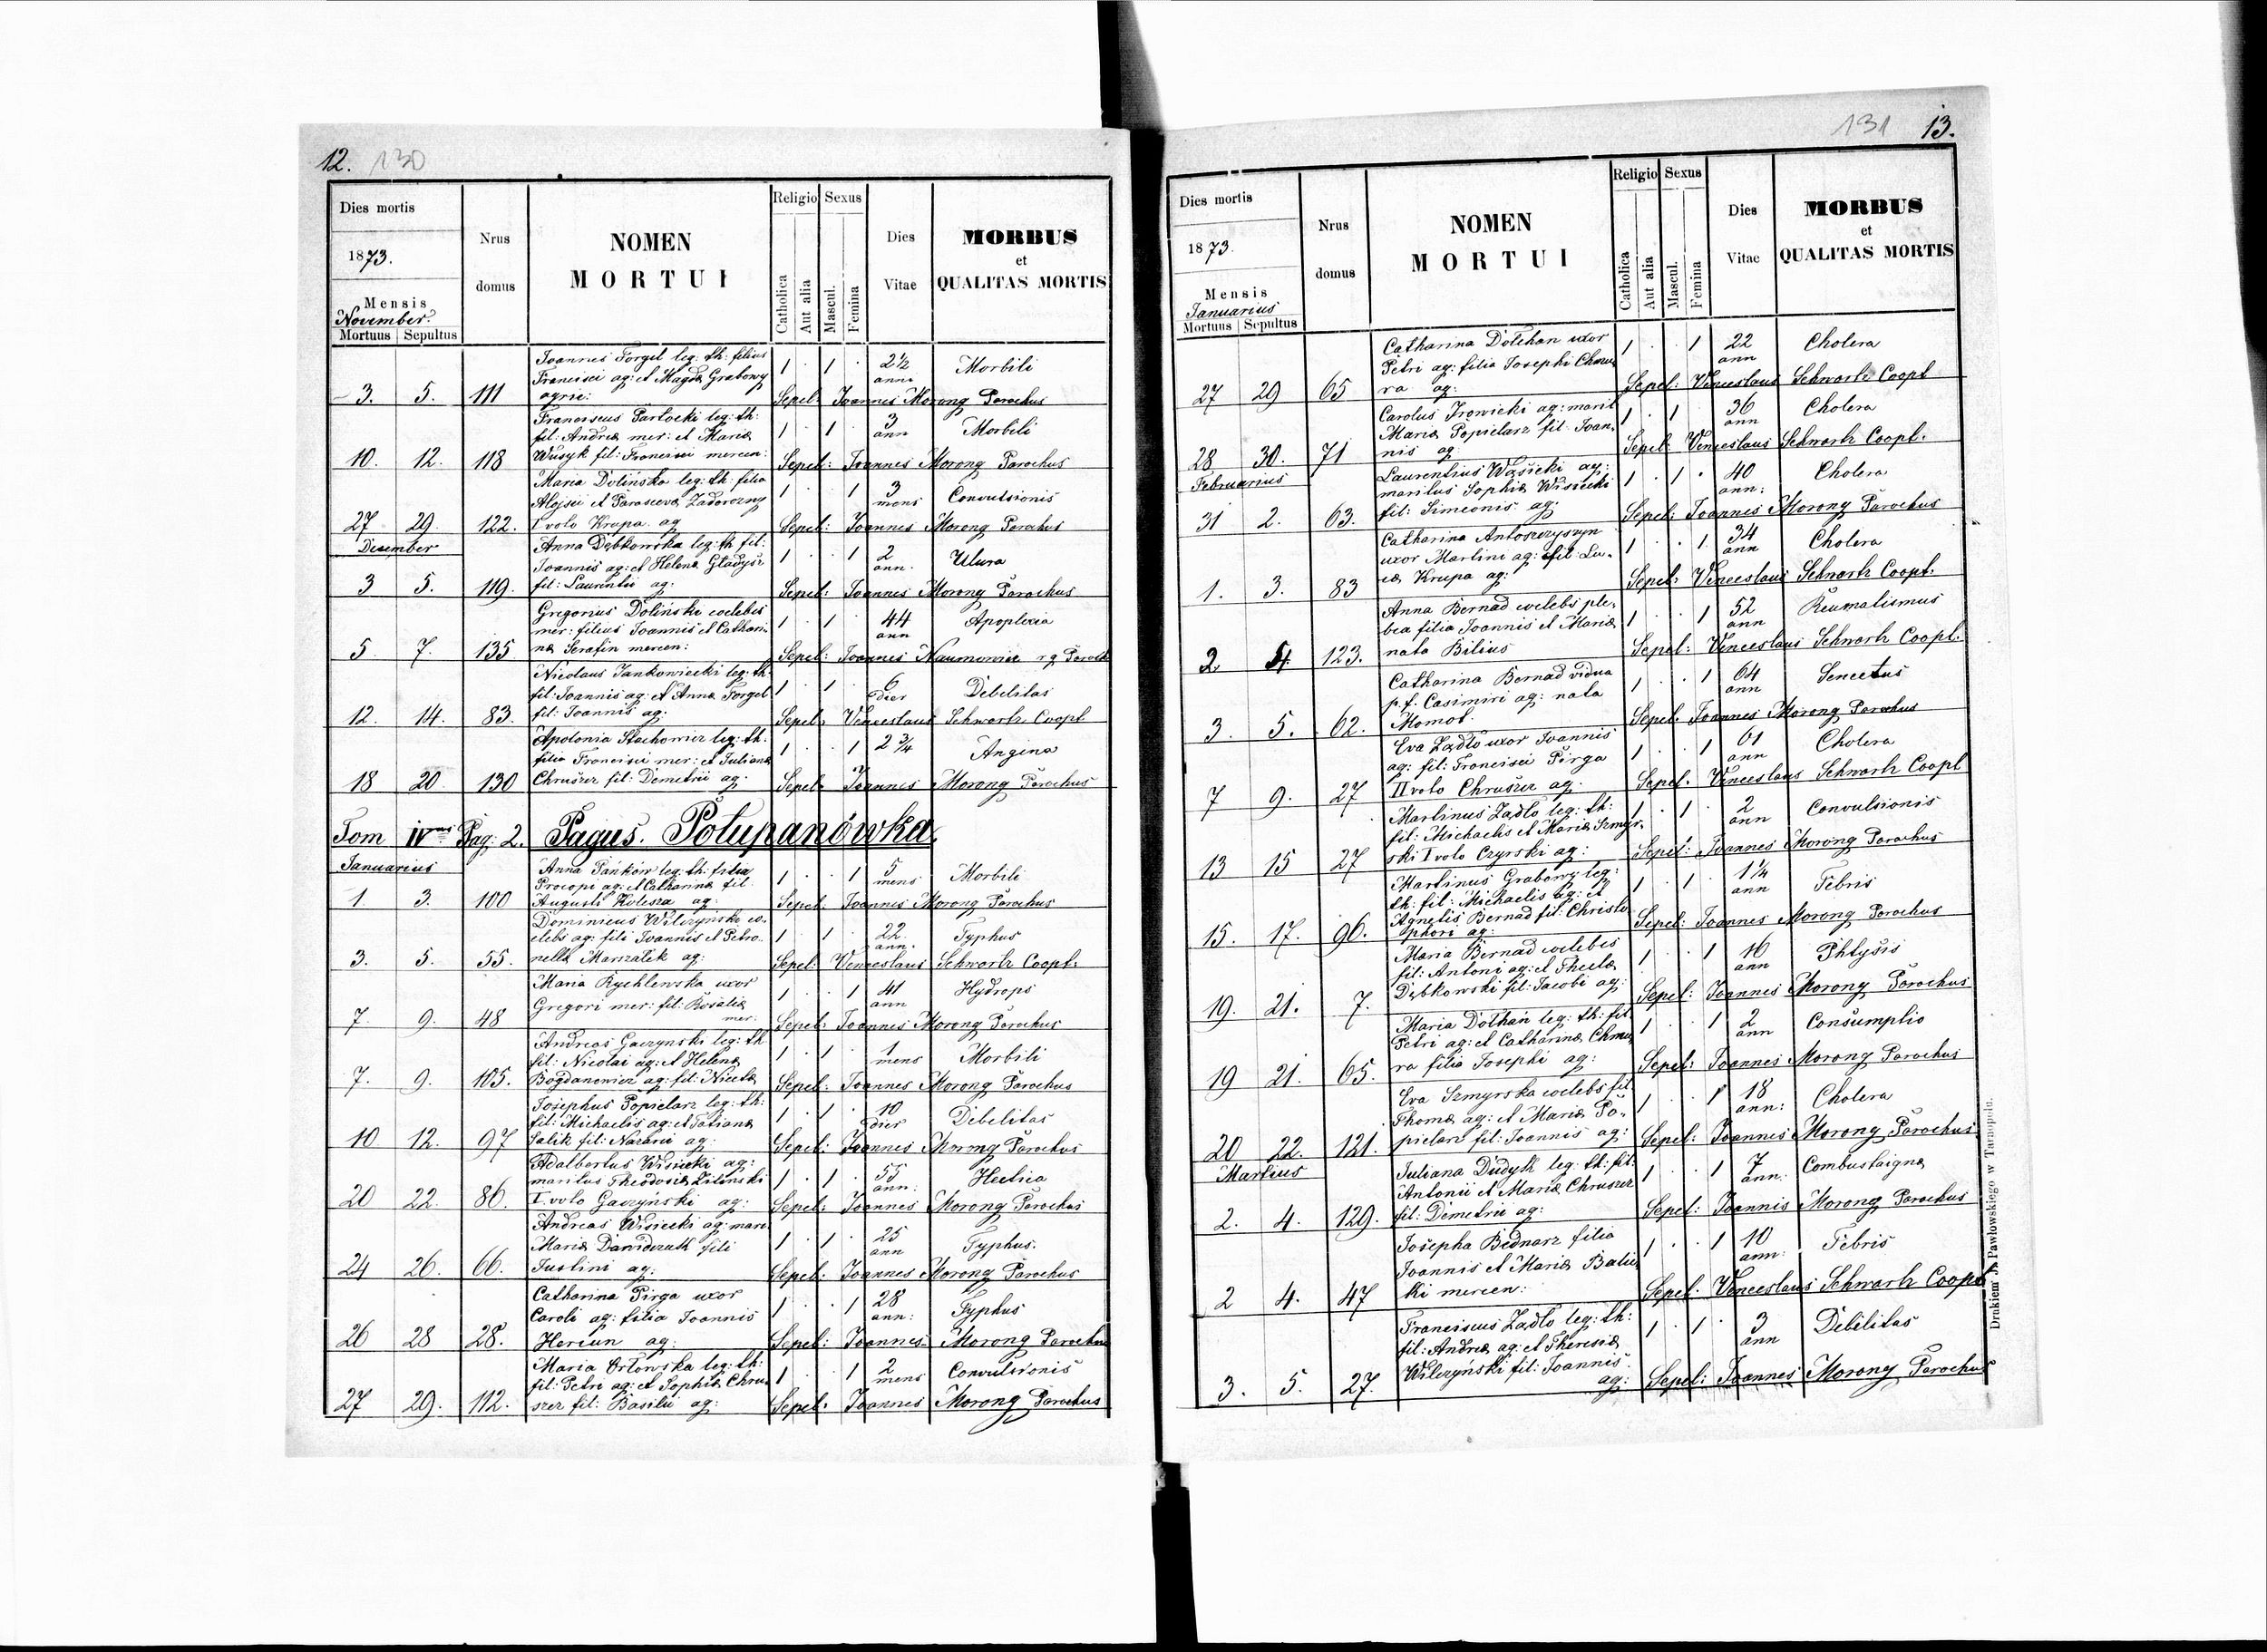 12. 130
Dies mortis
1873.
Mensis
November
Mortuus Sepultus
Nrus domus
NOMEN
MORTUI
Religio Sexus
Catholica
Aut alia
Mascul.
Femina
Dies
Vitae
MORBUS
et
QUALITAS MORTIS
Joannes Forgel leg: th: filius
Francisci ag: et Magda Grabowy
agric:
3. 5. 111 1 . 1 . 2½ anni Morbili
Sepel: Joannes Morong Parochus
Franciscus Parlocki leg: th:
fil: Andreæ mer: et Mariæ
Wusyk fil: Francisci mercen:
10. 12. 118 1 . 1 . 3 ann Morbili
Sepel: Joannes Morong Parochus
Maria Dolińska leg: th: filia
Alojsii et Parasceva Zadorozny
I voto Krupa ag
27 29. 122. 1 . . 1 3 mens Convulsionis
Sepel: Joannes Morong Parochus
December
Anna Dębkowska leg: th fil:
Joannis ag: et Helenæ Gladysz
fil: Laurentii ag:
3 5. 119. 1 . . 1 2 ann. Ulura
Sepel: Joannes Morong Parochus
Gregorius Doliński coelebs
mer: filius Joannis et Cathari-
næ Serafin mercen:
5 7. 135 1 . 1 . 44 ann Apoplexia
Sepel: Joannes Naumowicz r.g. Paroch
Nicolaus Jankowiecki leg: th:
fil: Joannis ag: et Anna Forgel
fil: Joannis ag:
12. 14. 83. 1 . 1 . 6 dier Debilitas
Sepel: Venceslaus Schwartz Coopt
Apolonia Stachowicz leg: th:
filia Francisci mer: et Julianæ
Chruszcz fil: Demetrii ag:
18 20. 130 1 . . 1 2 ¾ Angina
Sepel: Joannes Morong Parochus
Tom IVus Pag: 2. Pagus. Połupanówka.
Januarius
Anna Pańków leg: th: filia
Procopi ag: et Catharinæ fil:
Augusti Kolesza ag:
1. 3. 100 1 . . 1 5 mens Morbili
Sepel: Joannes Morong Parochus
Dominicus Wilczyński co-
elebs ag: fili Joannis et Petro-
nella Marszalik ag:
3. 5. 55. 1 . 1 . 22. ann. Typhus
Sepel: Venceslaus Schwartz Coopt.
Maria Rychlewska uxor
Gregori mer: fil: Rosaliæ
mer:
7. 9. 48 1 . . 1 41 ann Hydrops
Sepel: Joannes Morong Parochus
Andreas Gaczynski leg: th
fil: Nicolai ag: et Helenæ
Bogdanowicz ag: fil: Nicolæ
7. 9. 105. 1 . 1 . 1 mens Morbili
Sepel: Joannes Morong Parochus
Josephus Popielarz leg: th:
fil: Michaelis ag: et Tatianæ
Salik fil: Nazarii ag:
10 12. 97 1 . 1 . 10 dier Debilitas
Sepel: Joannes Morong Parochus
Adalbertus Wisiecki ag:
maritus Theodosiæ Żiliński
I. voto Gaczyński ag:
20 22. 86. 1 . 1 . 55 ann: Hectica
Sepel: Joannes Morong Parochus
Andreas Wisiecki ag: mari
Mariæ Dawidczuk fili
Justini ag:
24 26. 66. 1 . 1 . 25 ann Typhus.
Sepel: Joannes Morong Parochus
Catharina Pirga uxor
Caroli ag: filia Joannis
Hercun ag:
26 28 28. 1 . . 1 28 ann: Typhus
Sepel: Joannes Morong Parochus
Maria Orłowska leg: th:
fil: Petri ag: et Sophiæ Chru-
szcz fil: Basilii ag:
27 29. 112. 1 . . 1 2 mens Convulsionis
Sepel: Joannes Morong Parochus
131 13.
Dies mortis
1873.
Mensis
Januarius
Mortuus Sepultus
Nrus
domus
NOMEN
MORTUI
Religio Sexus
Catholica
Aut alia
Mascul.
Femina
Dies
Vitae
MORBUS
et
QUALITAS MORTIS
Catharina Dolchan uxor
Petri ag: filia Josephi Chmu-
ra ag:
27 29 65 1 . . 1 22 ann Cholera
Sepel: Venceslaus Schwartz Coopt
Carolus Irowicki ag: marit
Mariæ Popielarz fil: Joan-
nis ag:
28 30. 71 1 . 1 . 36 ann Cholera
Sepel: Venceslaus Schwartz Coopt.
Februarius
Laurentius Wąsicki ag:
maritus Sophiæ Wisiecki
fil: Simeonis ag:
31 2. 63. 1 . 1 . 40 ann: Cholera
Sepel: Joannes Morong Parochus
Catharina Antoszczyszyn
uxor Martini ag: fil: Lu-
cæ Krupa ag:
1. 3. 83 1 . . 1. 34 ann Cholera
Sepel: Venceslaus Schwartz Coopt.
Anna Bernad coelebs ple-
bea filia Joannis et Mariæ
nata Bilius
2. 4. 123. 1 . . 1 52 ann Reumatismus
Sepel: Venceslaus Schwartz Coopt.
Catharina Bernad vidua
p.f. Casimiri ag: nata
Momot.
3. 5. 62. 1 . . 1 64 ann Senectus
Sepel: Joannes Morong Parochus
Eva Żądło uxor Joannis
ag: fil: Francisci Pirga
II voto Chruszcz ag:
7 9. 27 1 . . 1 61 ann Cholera
Sepel: Venceslaus Schwartz Coopt
Martinus Żądło leg: th:
fil: Michaelis et Mariæ Szmyr-
ski I voto Czyrski ag:
13 15 27 1 . 1 . 2 ann Convulsionis
Sepel: Joannes Morong Parochus
Martinus Grabowy leg:
th: fil: Michaelis ag: et
Agnetis Bernad fil: Christo
phori ag:
15. 17. 96. 1 . 1 . 1¼ ann Febris
Sepel: Joannes Morong Parochus
Maria Bernad coelebs
fil: Antoni ag: et Theclæ
Dębkowski fil: Jacobi ag:
19. 21. 7. 1 . . 1 16 ann Phtysis
Sepel: Joannes Morong Parochus
Maria Dolhań leg: th: fil:
Petri ag: et Catharinæ Chmu-
ra filia Josephi ag:
19 21. 65. 1 . . 1 2 ann Consumptio
Sepel: Joannes Morong Parochus
Eva Szmyrska coelebs fil
Thomæ ag: et Mariæ Po-
pielarz fil: Joannis ag:
20 22. 121. 1 . . 1 18 ann: Cholera
Sepel: Joannes Morong Parochus
Martius
Juliana Dudyk leg: th: fil:
Antonii et Mariæ Chruszcz
fil: Demetrii ag:
2. 4. 129. 1 . . 1 7 ann: Combustaigne
Sepel: Joannis Morong Parochus
Josepha Bednarz filia
Joannis et Mariæ Balic
ki mercen:
2 4. 47 1 . . 1 10 ann: Febris
Sepel: Venceslaus Schwartz Coopt
Franciscus Żądło leg: th:
fil: Andreæ ag: et Theresiæ
Wilczyński fil: Joannis
ag:
3. 5. 27. 1 . 1 . 3 ann Debilitas
Sepel: Joannes Morong Parochus
Drukiem J. Pawłowskiego w Tarnopolu.